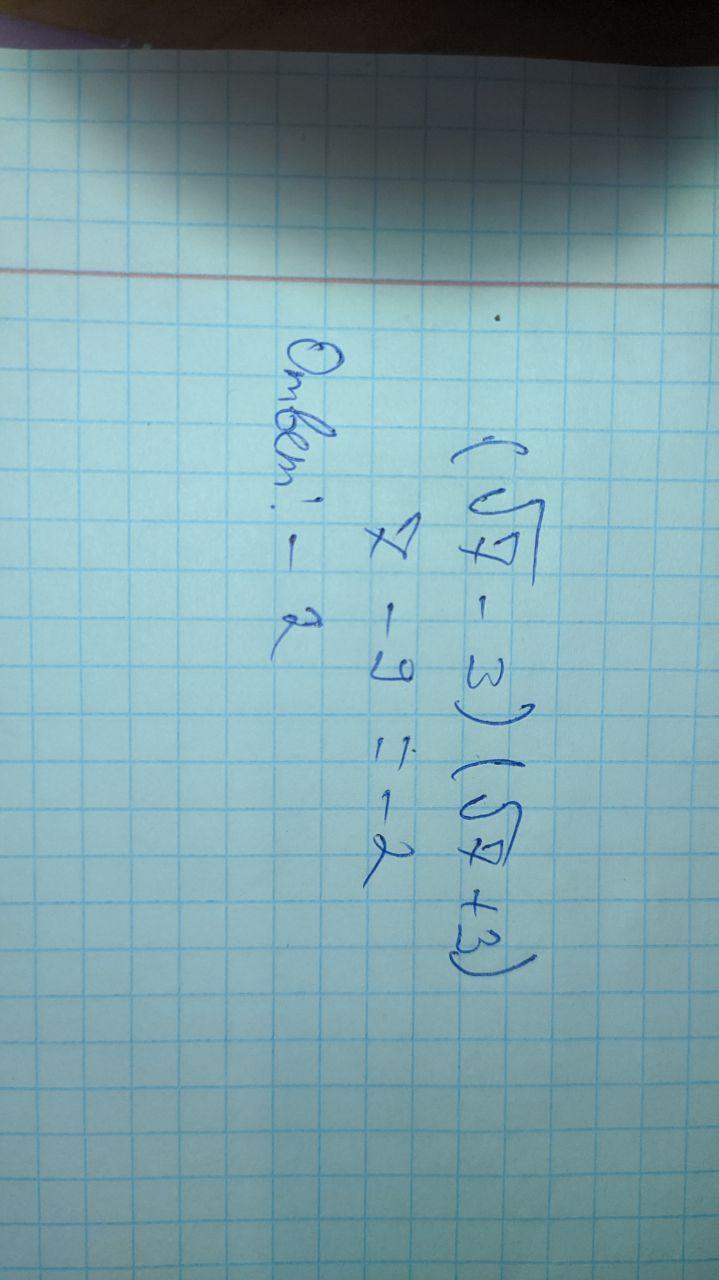 (√7 - 3)(√7 + 3)
7 - 9 = -2
Ответ: - 2